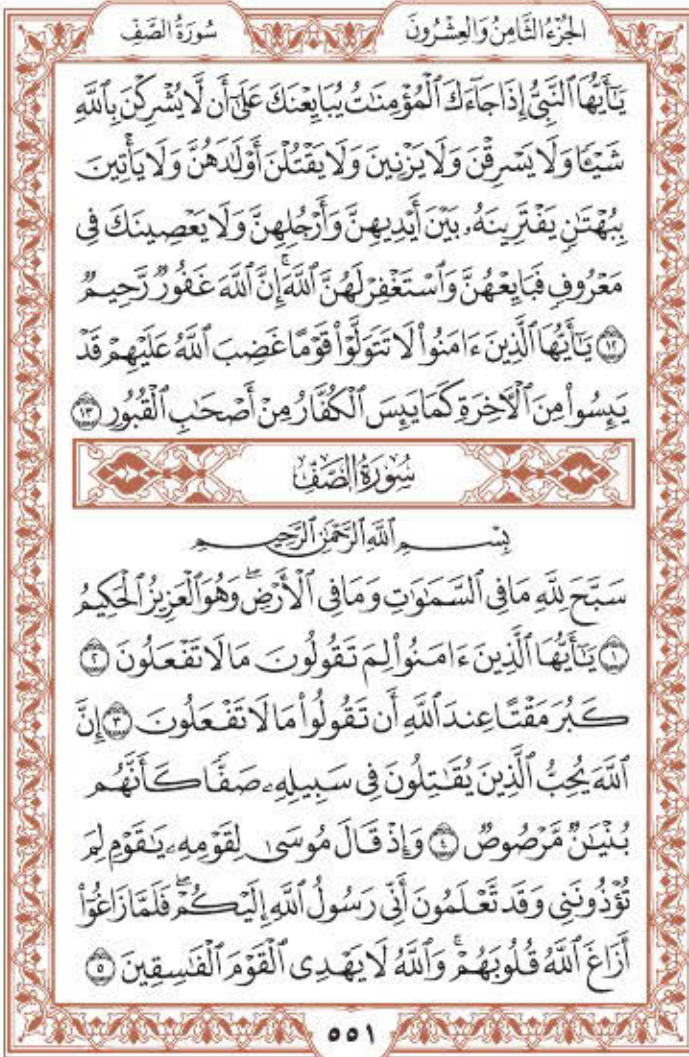 الجُزْءُ الثَّامِنُ وَالعِشْرُونَ سُورَةُ الصَّفِّ
يَٰٓأَيُّهَا ٱلنَّبِيُّ إِذَا جَآءَكَ ٱلْمُؤْمِنَٰتُ يُبَايِعْنَكَ عَلَىٰٓ أَن لَّا يُشْرِكْنَ بِٱللَّهِ
شَيْـًٔا وَلَا يَسْرِقْنَ وَلَا يَزْنِينَ وَلَا يَقْتُلْنَ أَوْلَٰدَهُنَّ وَلَا يَأْتِينَ
بِبُهْتَٰنٍ يَفْتَرِينَهُۥ بَيْنَ أَيْدِيهِنَّ وَأَرْجُلِهِنَّ وَلَا يَعْصِينَكَ فِى
مَعْرُوفٍ فَبَايِعْهُنَّ وَٱسْتَغْفِرْ لَهُنَّ ٱللَّهَ ۚ إِنَّ ٱللَّهَ غَفُورٌ رَّحِيمٌ
١٢ يَٰٓأَيُّهَا ٱلَّذِينَ ءَامَنُوا۟ لَا تَتَوَلَّوْا۟ قَوْمًا غَضِبَ ٱللَّهُ عَلَيْهِمْ قَدْ
يَئِسُوا۟ مِنَ ٱلْءَاخِرَةِ كَمَا يَئِسَ ٱلْكُفَّارُ مِنْ أَصْحَٰبِ ٱلْقُبُورِ ١٣
سُورَةُ الصَّفِّ
بِسْمِ ٱللَّهِ ٱلرَّحْمَٰنِ ٱلرَّحِيمِ
سَبَّحَ لِلَّهِ مَا فِى ٱلسَّمَٰوَٰتِ وَمَا فِى ٱلْأَرْضِ ۖ وَهُوَ ٱلْعَزِيزُ ٱلْحَكِيمُ
١ يَٰٓأَيُّهَا ٱلَّذِينَ ءَامَنُوا۟ لِمَ تَقُولُونَ مَا لَا تَفْعَلُونَ ٢
كَبُرَ مَقْتًا عِندَ ٱللَّهِ أَن تَقُولُوا۟ مَا لَا تَفْعَلُونَ ٣ إِنَّ
ٱللَّهَ يُحِبُّ ٱلَّذِينَ يُقَٰتِلُونَ فِى سَبِيلِهِۦ صَفًّا كَأَنَّهُم
بُنْيَٰنٌ مَّرْصُوصٌ ٤ وَإِذْ قَالَ مُوسَىٰ لِقَوْمِهِۦ يَٰقَوْمِ لِمَ
تُؤْذُونَنِى وَقَد تَّعْلَمُونَ أَنِّى رَسُولُ ٱللَّهِ إِلَيْكُمْ ۖ فَلَمَّا زَاغُوٓا۟
أَزَاغَ ٱللَّهُ قُلُوبَهُمْ ۚ وَٱللَّهُ لَا يَهْدِى ٱلْقَوْمَ ٱلْفَٰسِقِينَ ٥
٥٥١